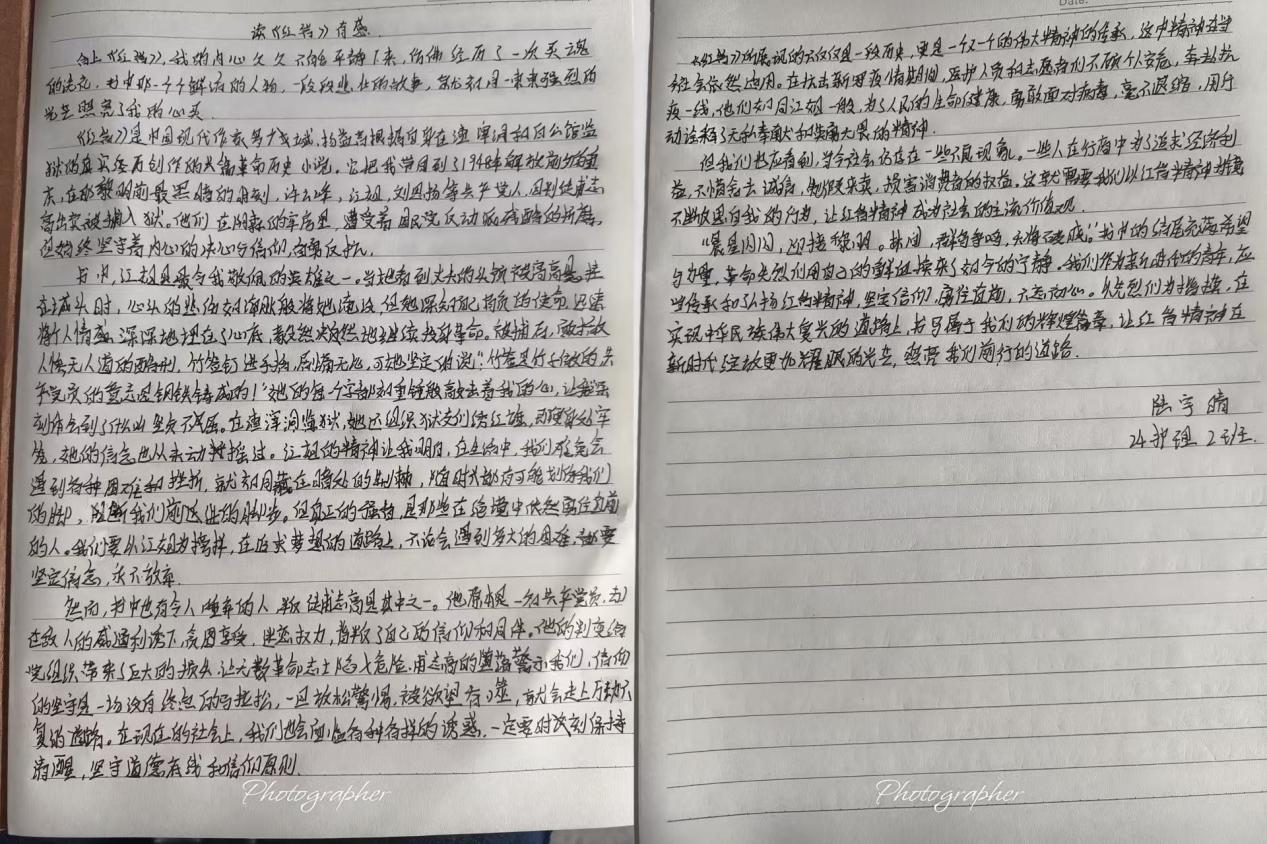 读《红岩》有感.
合上《红岩》,我的内心久久不能平静下来,仿佛经历了一次灵魂
的洗礼,书中那一个个鲜活的人物,一段段悲壮的故事,就如同一束束强烈的
光芒照亮了我的心灵.
《红岩》是中国现代作家罗广斌,杨益言根据自身在渣滓洞和白公馆监
狱的真实经历创作的长篇革命历史小说。它把我带回到了1948年解放前夕的重
庆,在那黎明前最黑暗的时刻,许云峰,江姐,刘思扬等共产党人,因叛徒甫志
高出卖被捕入狱。他们在阴森的牢房里,遭受着国民党反动派残酷的折磨,
但始终坚守着内心的决心与信仰,勇敢反抗.
书中,江姐是最令我敬佩的英雄之一。当她看到丈夫的头颅被高高悬挂
在城头时,心头的悲伤如潮水般将她淹没,但她深知自己肩负的使命,迅速
将个人情感深深地埋在了心底,毅然决然地继续投身革命。被捕后,敌人
惨无人道的酷刑,竹签钉进手指,可她坚定的说:“竹签是竹子做的,共
产党员的意志是钢铁铸成的!”她的每个字都如重锤般敲击着我的心,让我深
刻体会到了什么叫坚贞不屈。在渣滓洞监狱,她还组织狱友们绣红旗,
她的信念也从未动摇过。江姐的精神让我明白,在生活中,我们难免会
遇到各种困难和挫折,就如同藏在暗处的荆棘,随时都有可能划伤我们
的脚,阻断我们前进的脚步。但真正的强者,是那些在绝境中依然勇往直前
的人。我们要以江姐为榜样,在追求梦想的道路上,不论会遇到多大的困难,都要
坚定信念,永不放弃.
然而,书中也有令人唾弃的人,叛徒甫志高是其中之一。他原本是一名共产党员,却
在敌人的威逼利诱下,贪图享受,迷恋权力,背叛了自己的信仰和同伴。他的叛变给
党组织带来了巨大的损失,让无数革命志士陷入危险。甫志高的堕落警示我们,信仰
的坚守是一场没有终点的马拉松,一旦放松警惕,被欲望吞噬,就会走上万劫不
复的道路。在现在的社会上,我们也会面临各种各样的诱惑,一定要时时刻刻保持
清醒,坚守道德底线和信仰原则.
《红岩》所展现的不仅仅是一段历史,更是一个又一个的伟大精神的传承,这种精神在当
今社会依然适用。在抗击新冠疫情期间,医护人员和志愿者们不顾个人安危,奔赴抗
疫一线,他们如同江姐一般,为了人民的生命健康,勇敢面对病毒,毫不退缩,用行
动诠释了无私奉献和英勇无畏的精神.
但我们也应看到,当今社会仍存在一些不良现象。一些人在行商中为了追求经济利
益,不惜舍去诚信,损害消费者的权益。这就需要我们以红岩精神为
不断反思自我的行为,让红岩精神成为社会的主流价值观.
“晨星闪闪,迎接黎明。林间,群鸟争鸣,天将破晓。”书中的结尾充满希望
与力量,革命先烈们用自己的鲜血换来了如今的宁静。我们作为新时代的青年,应
当传承和弘扬红岩精神,坚定信仰,勇往直前,不忘初心。以先烈们为榜样,在
实现中华民族伟大复兴的道路上,书写属于我们的辉煌篇章,让红岩精神在
新时代绽放更加耀眼的光芒,照亮我们前行的道路.
陆宇晴
24护理2班.
Date:
Photographer
Photographer